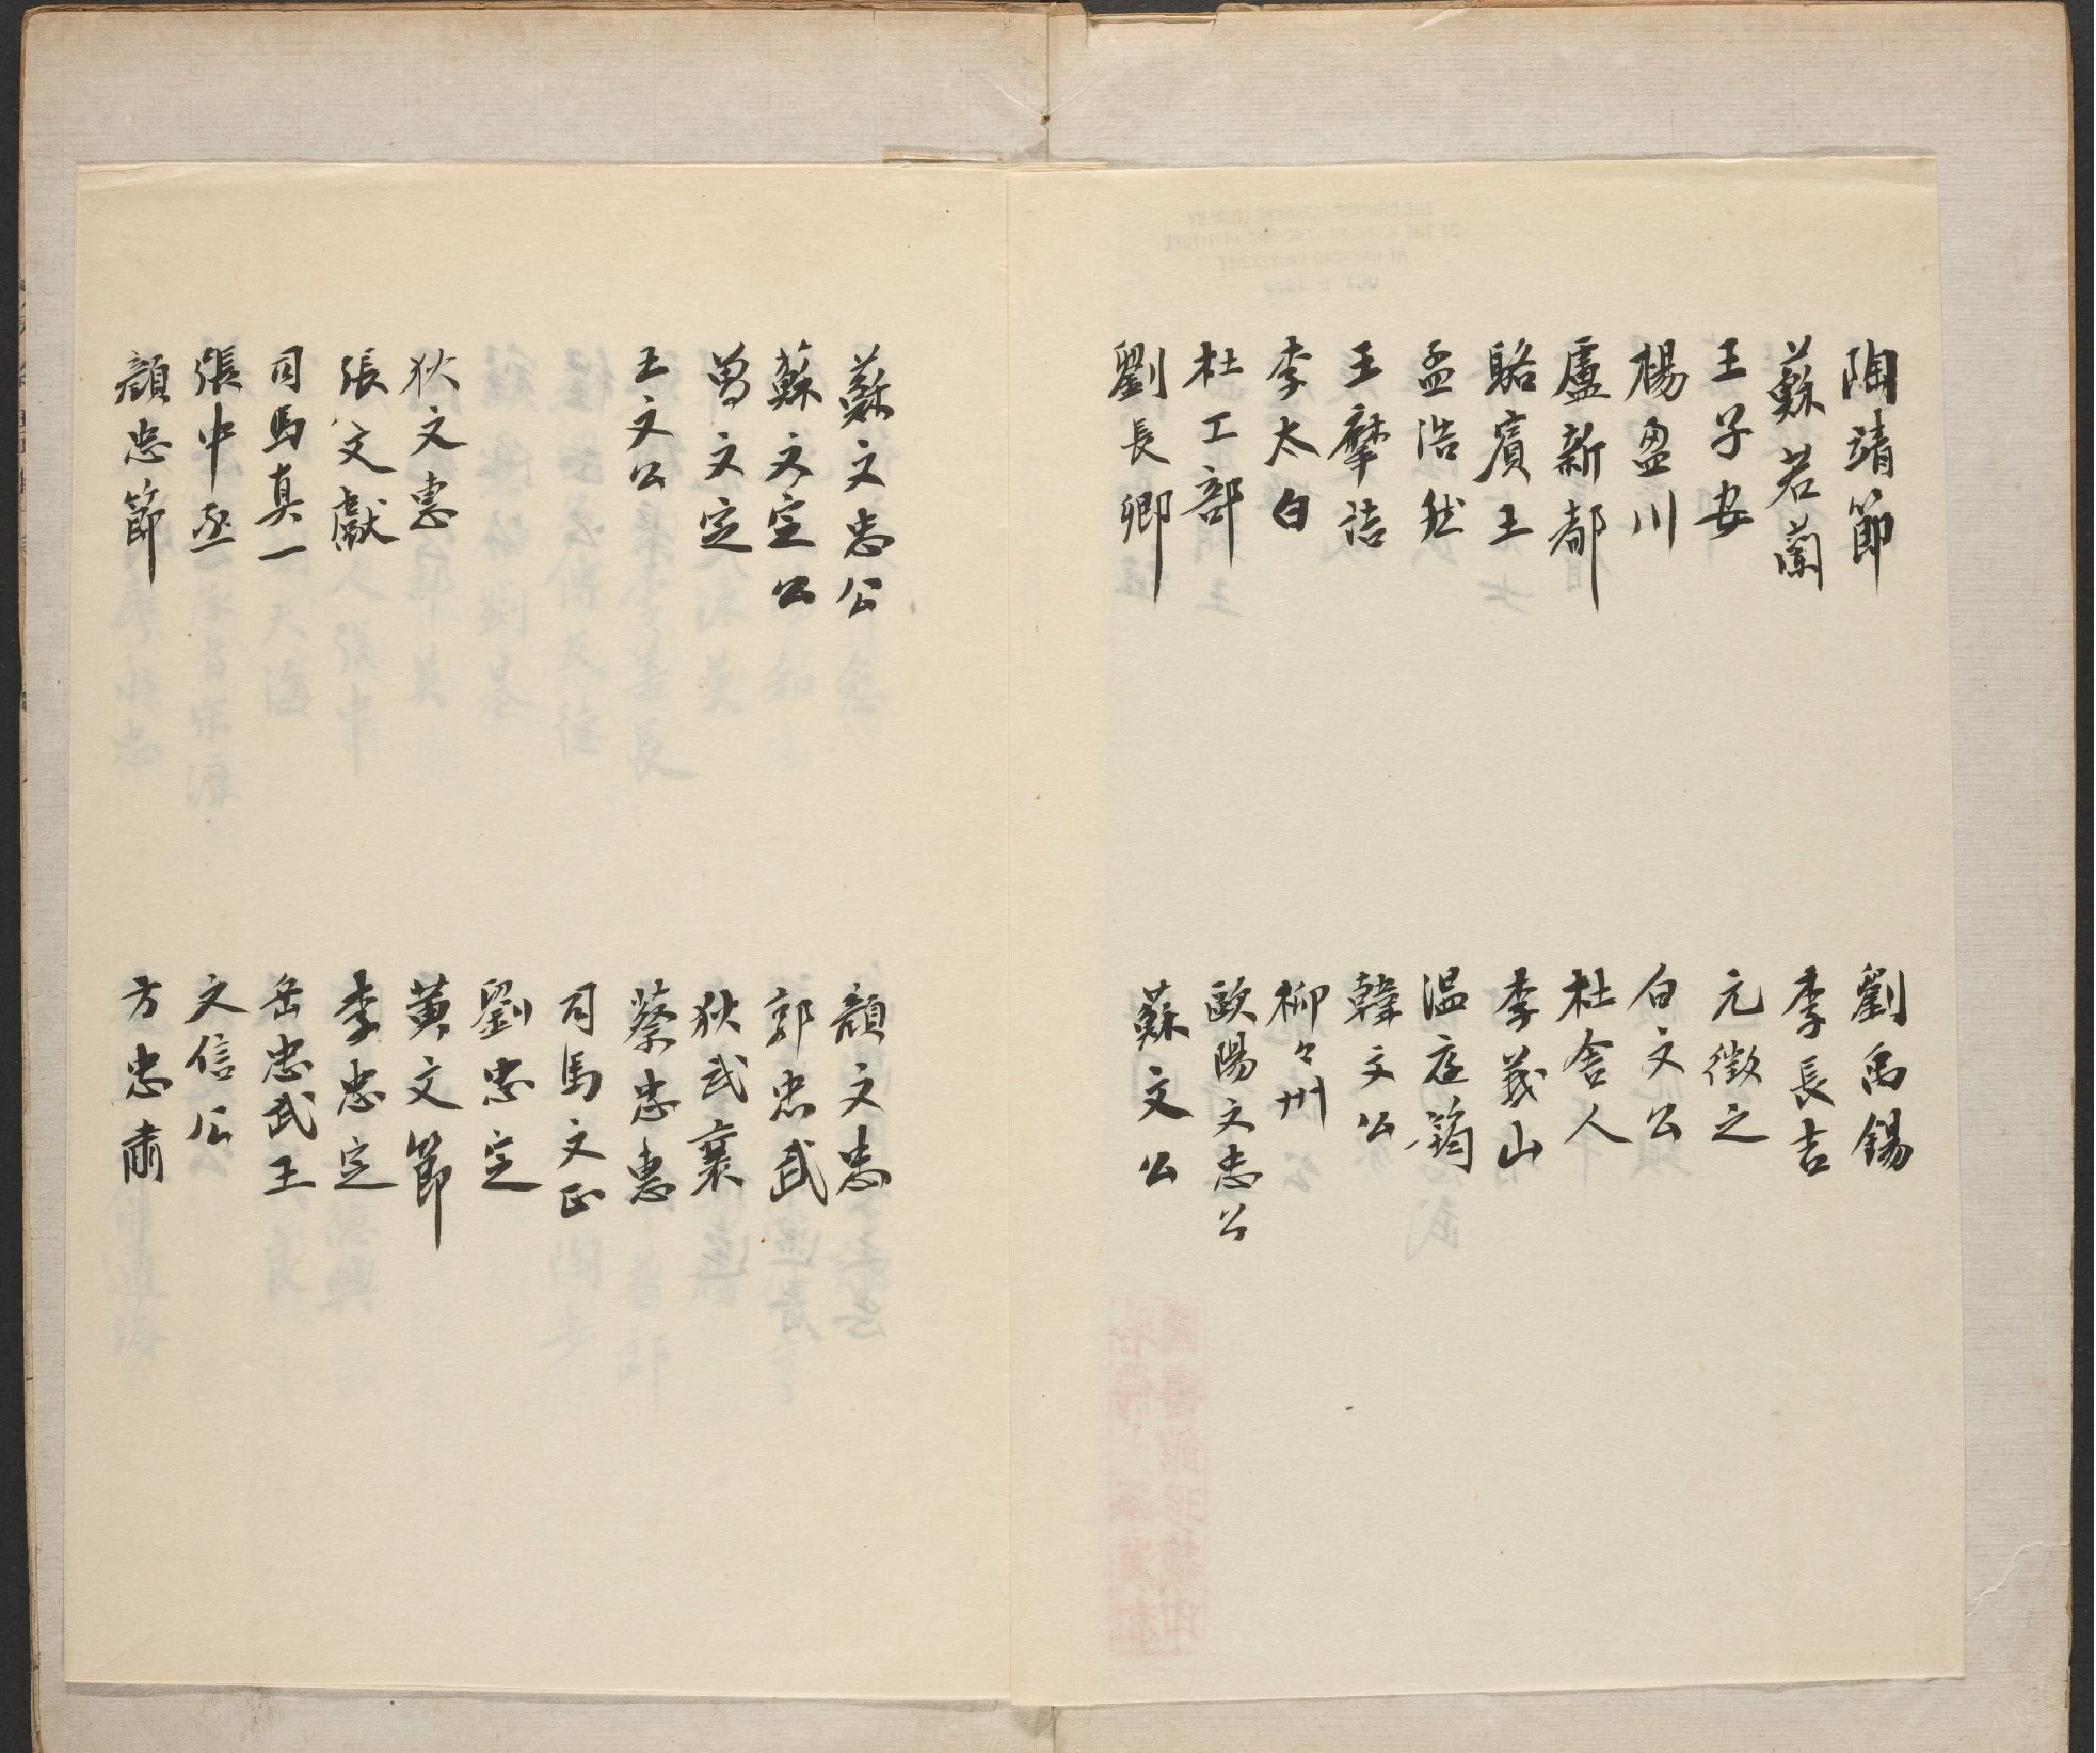 陶靖節
蘇若蘭
王子安
楊盈川
盧新都
駱賓王
孟浩然
王摩詰
李太白
杜工部
劉長卿
劉禹錫
李長吉
元微之
白文公
杜舍人
李義山
温庭筠
韓文公
柳々州
歐陽文忠公
蘇文公
蘇文忠公
蘇文定公
曾文定
王文公
狄文惠
張文獻
司馬真一
張中丞
顔忠節
顔文忠
郭忠武
狄武襄
蔡忠惠
司馬文正
劉忠定
黄文節
李忠定
岳忠武王
文信公
方忠肅